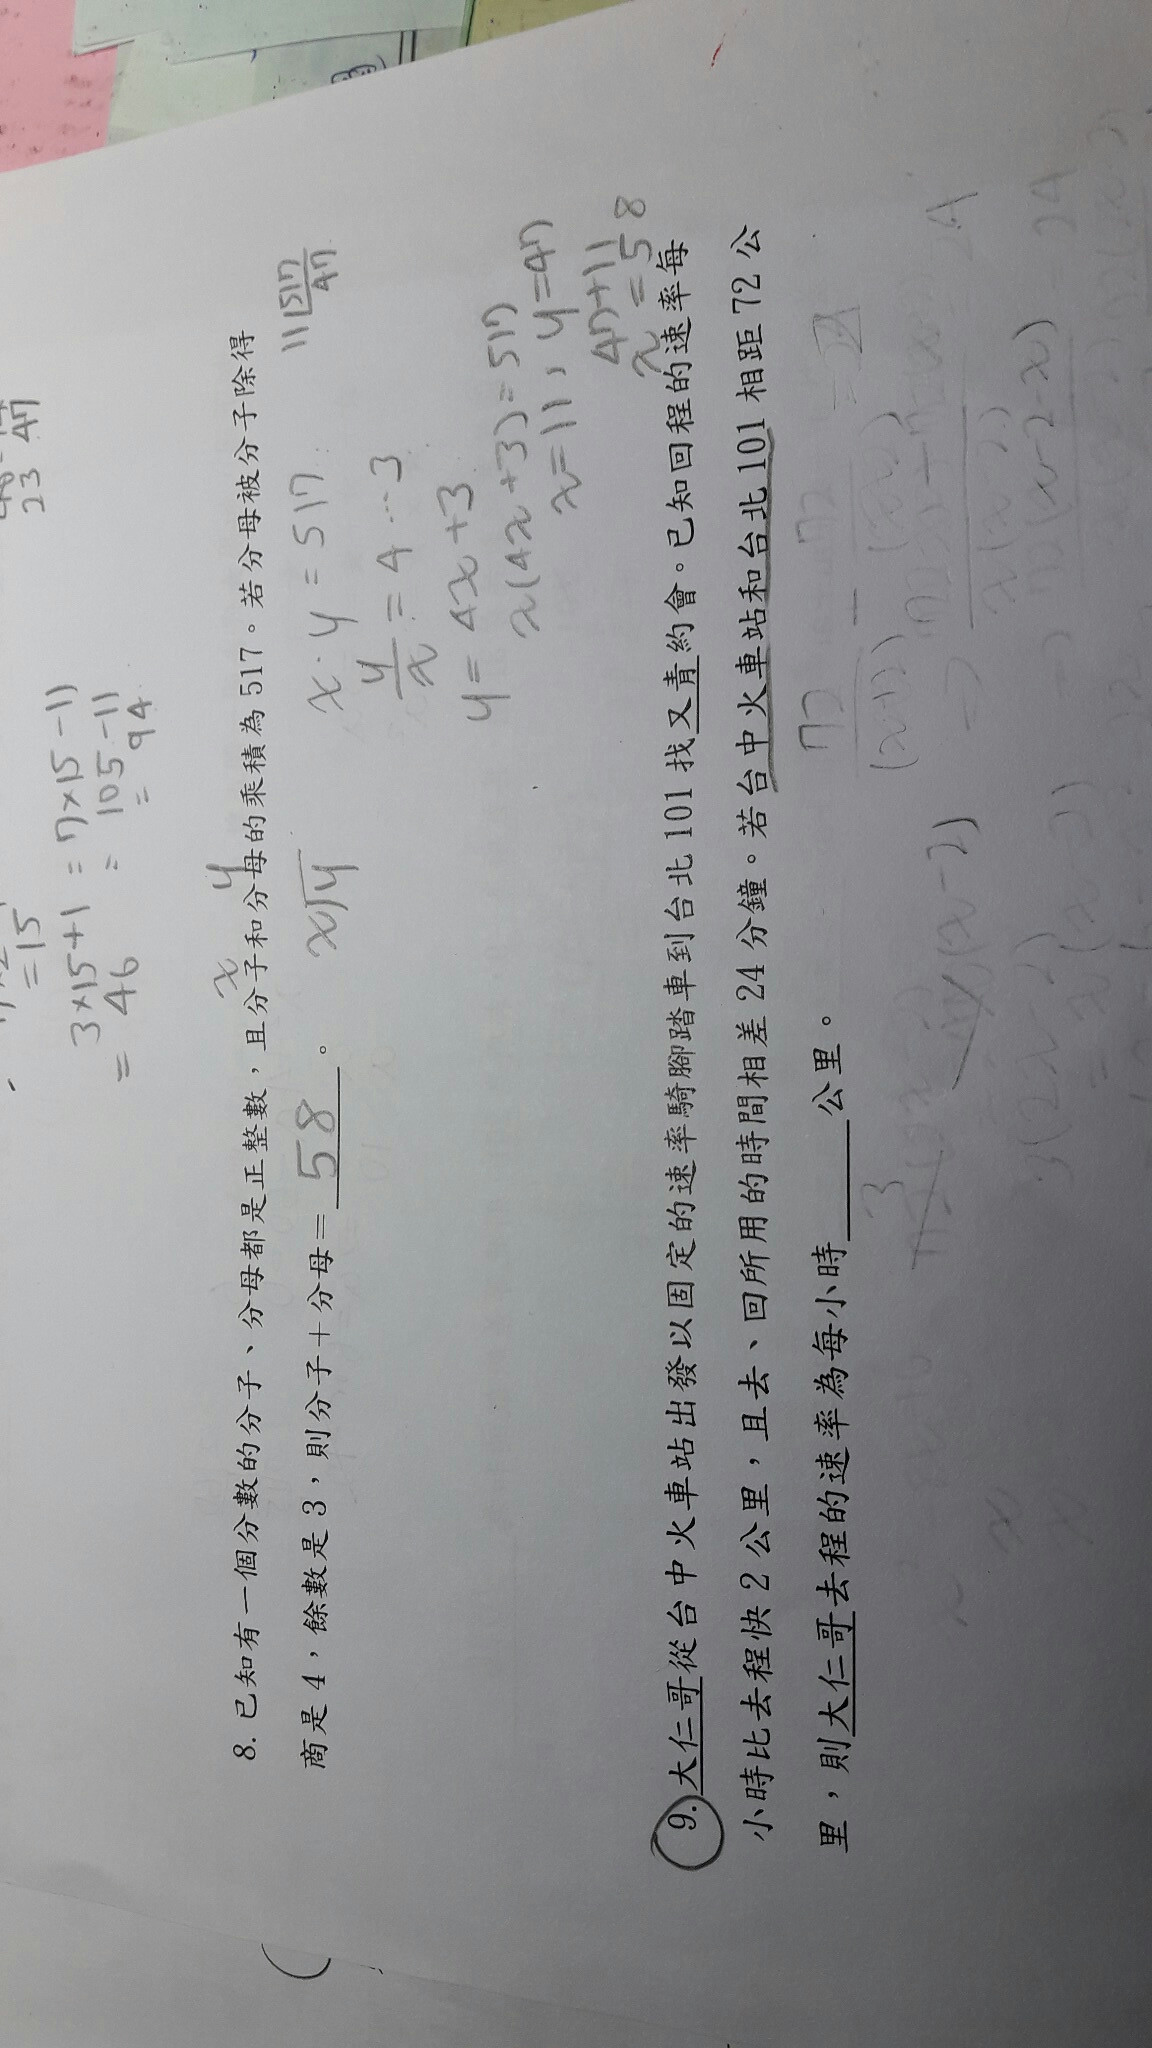 23 47
=15
3×15+1 = 7×15-11
= 46 = 105-11
= 94
8. 已知有一個分數的分子、分母都是正整數，且分子和分母的乘積為 517。若分母被分子除得
x y
商是 4，餘數是 3，則分子＋分母＝ 58 。
x y
x·y=517
11 517
47
y/x=4…3
y=4x+3
x(4x+3)=517
x=11, y=47
47+11
=58
9. 大仁哥從台中火車站出發以固定的速率騎腳踏車到台北 101 找又青約會。已知回程的速率每
小時比去程快 2 公里，且去、回所用的時間相差 24 分鐘。若台中火車站和台北 101 相距 72 公
里，則大仁哥去程的速率為每小時______公里。